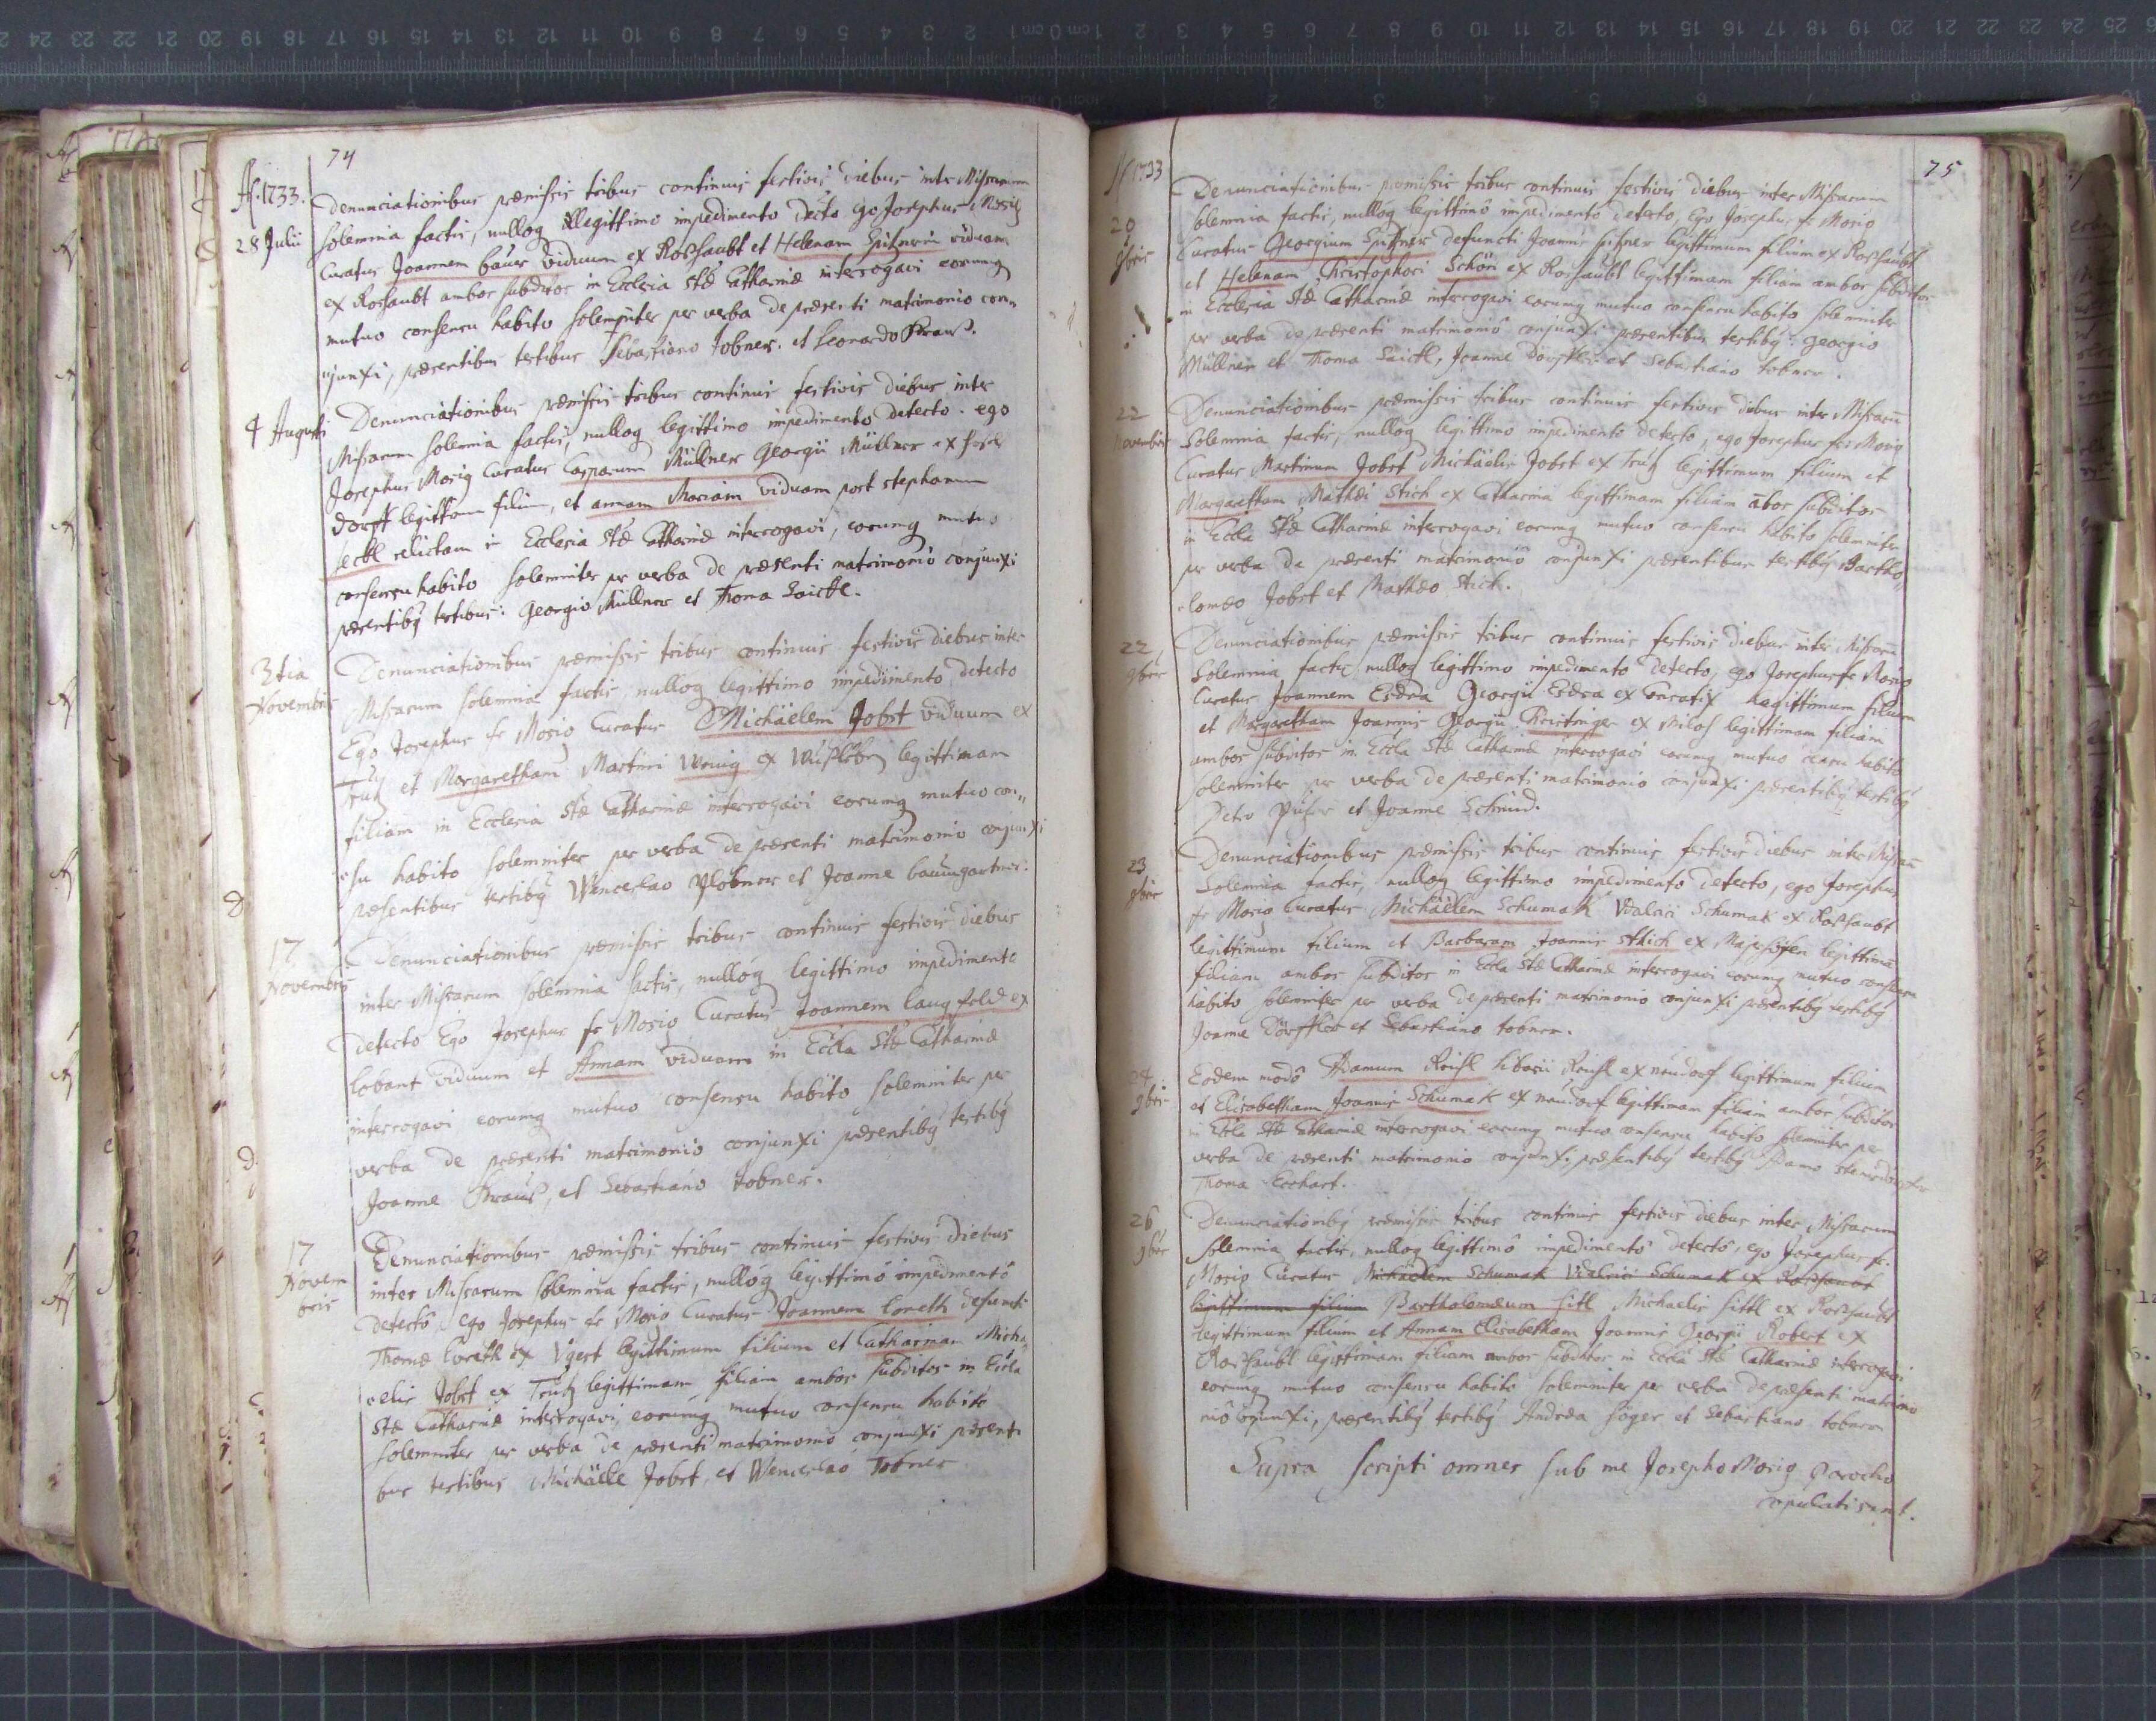 74
A. 1733.
28 Julii
Denunciationibus præmissis tribus continuis festivis diebus inter Missarum
solemnia factis, nulloq legittimo impedimento decto ego Josephus Mosig
Curatus Joannem bauer viduum ex Roßhaubt et Helenam Spitznerin viduam
ex Roshaubt ambos subditos in Ecclesia Stæ Catharinæ interrogavi eorumq
mutuo consensu habito solemniter per verba de præsenti matrimonio con„
„junxi, præsentibus testibus Sebastiano Tobner. et Leonardo Kraus.
4 Augusti
Denunciationibus præmissis tribus continuis festivis diebus inter
Missarum solemnia factis, nulloq legittimo impedimento detecto. ego
Josephus Mosig Curatus Casparum Müllner Georgii Müllner ex
dorff legittimum filium, et annam Mariam viduam post stephanum
seckl relictam in Ecclesia Stæ Catharinæ interrogavi, eorumq mutuo
consensu habito solemniter per verba de præsenti matrimonio conjunxi
præsentibq testibus: Georgio Müllner et Thoma Saickl.
3tia
Novembris
Denunciationibus præmissis tribus continuis festivis diebus inter
Missarum solemnia factis nulloq legittimo impedimento detecto
Ego Josephus fr Mosig Curatus Michäelem Jobst viduum ex
Truz et Margaretham Martini Wenig ex legittimam
filiam in Ecclesia Stæ Catharinæ interrogavi eorumq mutuo con„
„su habito solemniter per verba de præsenti matrimonio conjunxi
præsentibus testibq Wenceslao Plobner et Joanne baumgartner.
17
Novembris
Denunciationibus præmissis tribus continuis festivis diebus
inter Missarum solemnia factis, nulloq legittimo impedimento
detecto Ego Josephus fr Mosig Curatus Joannem langfeld ex
viduum et Annam viduam in Eccla Stæ Catharinæ
interrogavi eorumq mutuo consensu habito solemniter per
verba de præsenti matrimonio conjunxi præsentibq testibq
Joanne Kraus, et Sebastiano tobner.
17
Novem
bris
Denunciationibus præmissis tribus continuis festivis diebus
inter Missarum solemnia factis, nulloq legittimô impedimentô
detectô, ego Josephus fr Mosig Curatus Joannem Loneth defuncti
Thomæ ex legittimum filium et Catharinam Micha
„elis Jobst ex Truz legittimam filiam ambos subditos in Eccla
Stæ Catharinæ interrogavi, eorumq mutuo consensu habito
solemniter per verba de præsenti matrimonio conjunxi præsenti
bus testibus Michäele Jobst, et Wenceslao Tobner
75
A. 1733
20
9bris
Denunciationibus præmissis tribus continuis festivis diebus inter Missarum
solemnia factis, nulloq legittimô impedimentô detecto, Ego Josephus fr Mosig
Curatus Georgium Spitzner defuncti Joannis spitzner legittimum filium ex Roßhaubt
et Helenam Christophori Schön ex Roshaubt legittimam filiam ambos subditos
in Ecclesia Stæ Catharinæ interrogavi eorumq mutuo consensu habito solemniter
per verba de præsenti matrimoniô conjunxi præsentibus testibq: Georgio
Müllner et Thoma Saickl, Joanne et Sebastiano tobner.
22
Novembris
Denunciationibus præmissis tribus continuis festivis diebus inter Missarū
Solemnia factis, nulloq legittimo impedimentô detecto, ego Josephus fr Mosig
Curatus Martinum Jobst Michäelis Jobst ex Truz legittimum filium et
Margaretham Mathæi Stich ex Catharina legittimam filiam ābos subditos
in Eccla Stæ Catharinæ interrogavi eorumq mutuo consensu habito solemniter
per verba de præsenti matrimoniô conjunxi præsentibus testibq Bartho„
„lomæo Jobst et Mathæo Stich.
22
9bris
Denunciationibus præmissis tribus continuis festivis diebus inter Missarū
Solemnia factis nulloq legittimo impedimento detecto, ego Josephus fr Mosig
Curatus Joannem Georgii ex legittimum filium
et Margaretham Joannis Georgii ex legittimam filiam
ambos subditos in Eccla Stæ Catharinæ interrogavi eorumq mutuo habito
solemniter per verba de præsenti matrimonio conjunxi præsentibq testibq
Petro et Joanne Schmid.
23
9bris
Denunciationibus præmissis tribus continuis festivis diebus inter Missarū
Solemnia factis, nulloq legittimo impedimento detecto, ego Josephus
fr Mosig Curatus Michäelem Schumak Vdalrici Schumak ex Roßhaubt
legittimum filium et Barbaram Joannis ex legittimā
filiam ambos subditos in Eccla Stæ Catharinæ interrogavi eorumq mutuo consensu
habito solemniter per verba de præsenti matrimonio conjunxi præsentibq testibq
Joanne et Sebastiano tobner.
24
9bris
Eodem modô Adamum Roisl Roisl ex neudorf legittimum filium
et Elisabetham Joannis Schumak ex neudorf legittimam filiam ambos subditos
in Eccla Stæ Catharinæ interrogavi eorumq mutuo consensu habito solemniter per
verba de præsenti matrimonio conjunxi præsentibq testibq Adamo
Thoma Eckhart.
26
9bris
Denunciationibq præmissis tribus continuis festivis diebus inter Missarum
solemnia factis, nulloq legittimô impedimentô detectô, ego Josephus fr.
Mosig Curatus Michäelem Schumak Vdalrici Schumak ex Roßhaubt
legittimum filium Bartholomæum sitl Michaelis sittl ex Roßhaubt
legittimum filium et Annam Elisabetham Joannis Georgii Robert ex
Roshaubt legittimam filiam ambos subditos in Eccla Stæ Catharinæ interrogavi
eorumq mutuo consensu habito solemniter per verba de præsenti matrimo
niô conjunxi, præsentibq testibq Andræa et Sebastiano tobner
Supra scripti omnes sub me Josepho Mosig Parocho
copulati sunt.